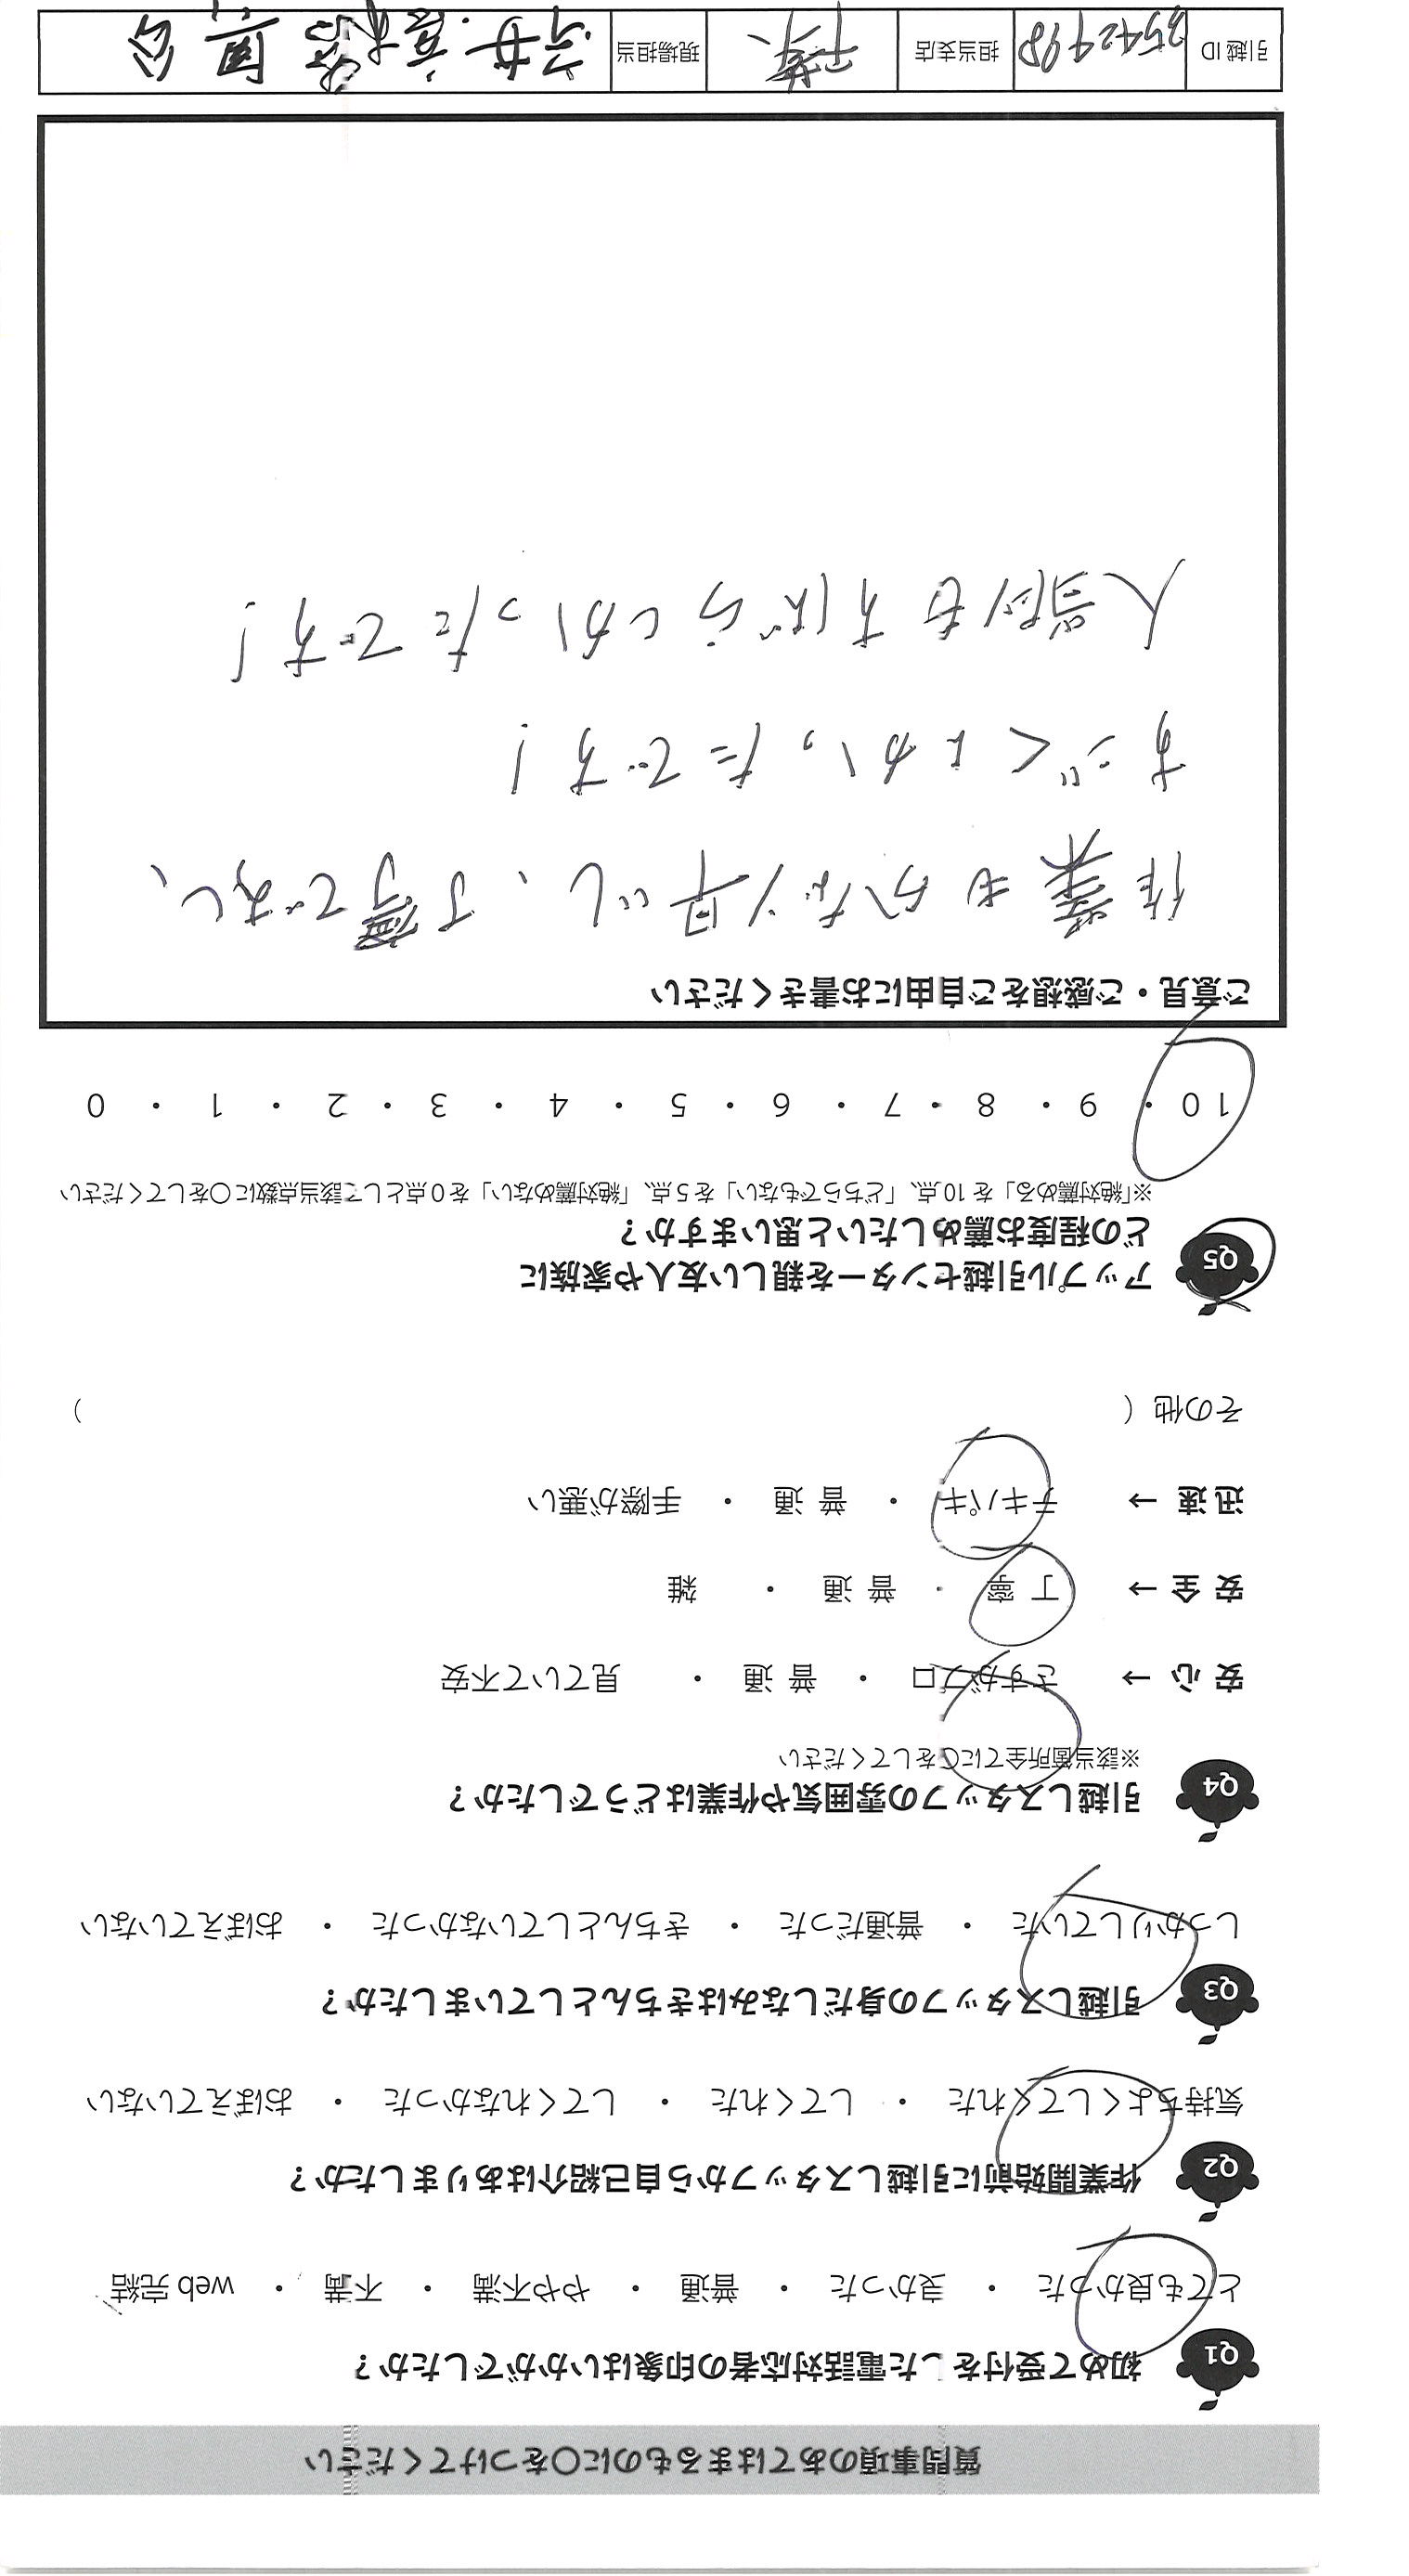 質問事項のあてはまるものに○をつけてください
Q1 初めて受付をした電話対応者の印象はいかがでしたか？
とても良かった ・ 良かった ・ 普通 ・ やや不満 ・ 不満 ・ web 完結
Q2 作業開始前に引越しスタッフから自己紹介はありましたか？
気持ちよくしてくれた ・ してくれた ・ してくれなかった ・ おぼえていない
Q3 引越しスタッフの身だしなみはきちんとしていましたか？
しっかりしていた ・ 普通だった ・ きちんとしていなかった ・ おぼえていない
Q4 引越しスタッフの雰囲気や作業はどうでしたか？
※該当箇所全てに○をしてください
安心 → さすがプロ ・ 普通 ・ 見ていて不安
安全 → 丁寧 ・ 普通 ・ 雑
迅速 → テキパキ ・ 普通 ・ 手際が悪い
その他（ ）
Q5 アップル引越センターを親しい友人や家族に
どの程度お薦めしたいと思いますか？
※「絶対薦める」を10点、「どちらでもない」を5点、「絶対薦めない」を0点として該当点数に○をしてください
10 ・ 9 ・ 8 ・ 7 ・ 6 ・ 5 ・ 4 ・ 3 ・ 2 ・ 1 ・ 0
ご意見・ご感想をご自由にお書きください
作業もかなり早いし、丁寧でして、
すごくよかったです！
人当りもすばらしかったです！
引越ID 3542498 担当支店 千葉 現場担当